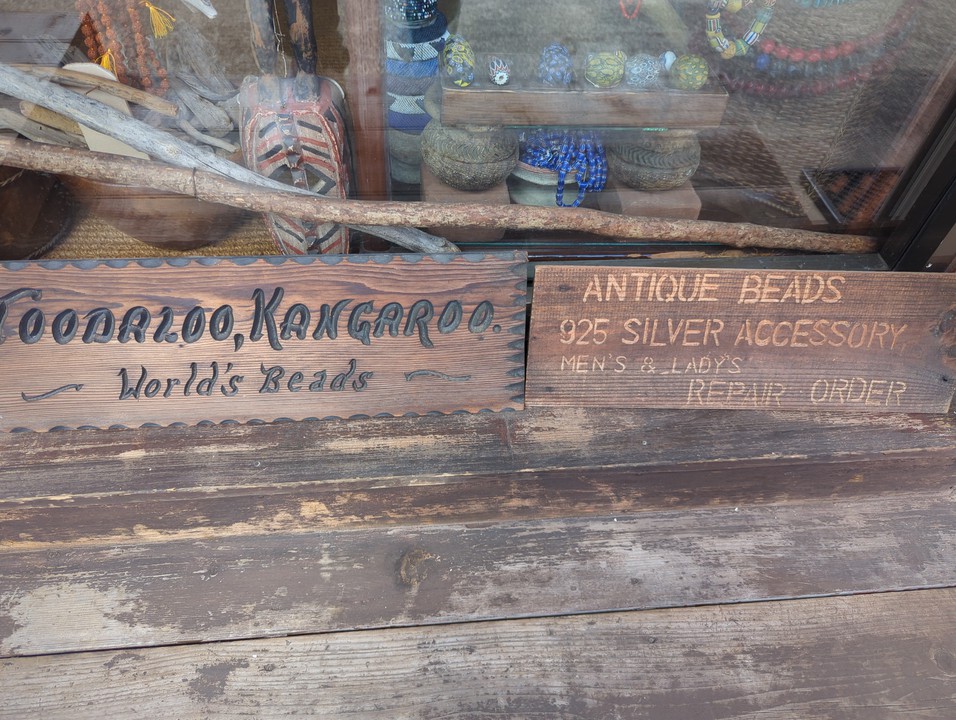 TOODALOO, KANGAROO.
World's Beads
ANTIQUE BEADS
925 SILVER ACCESSORY,
MEN'S & LADY'S
REPAIR ORDER